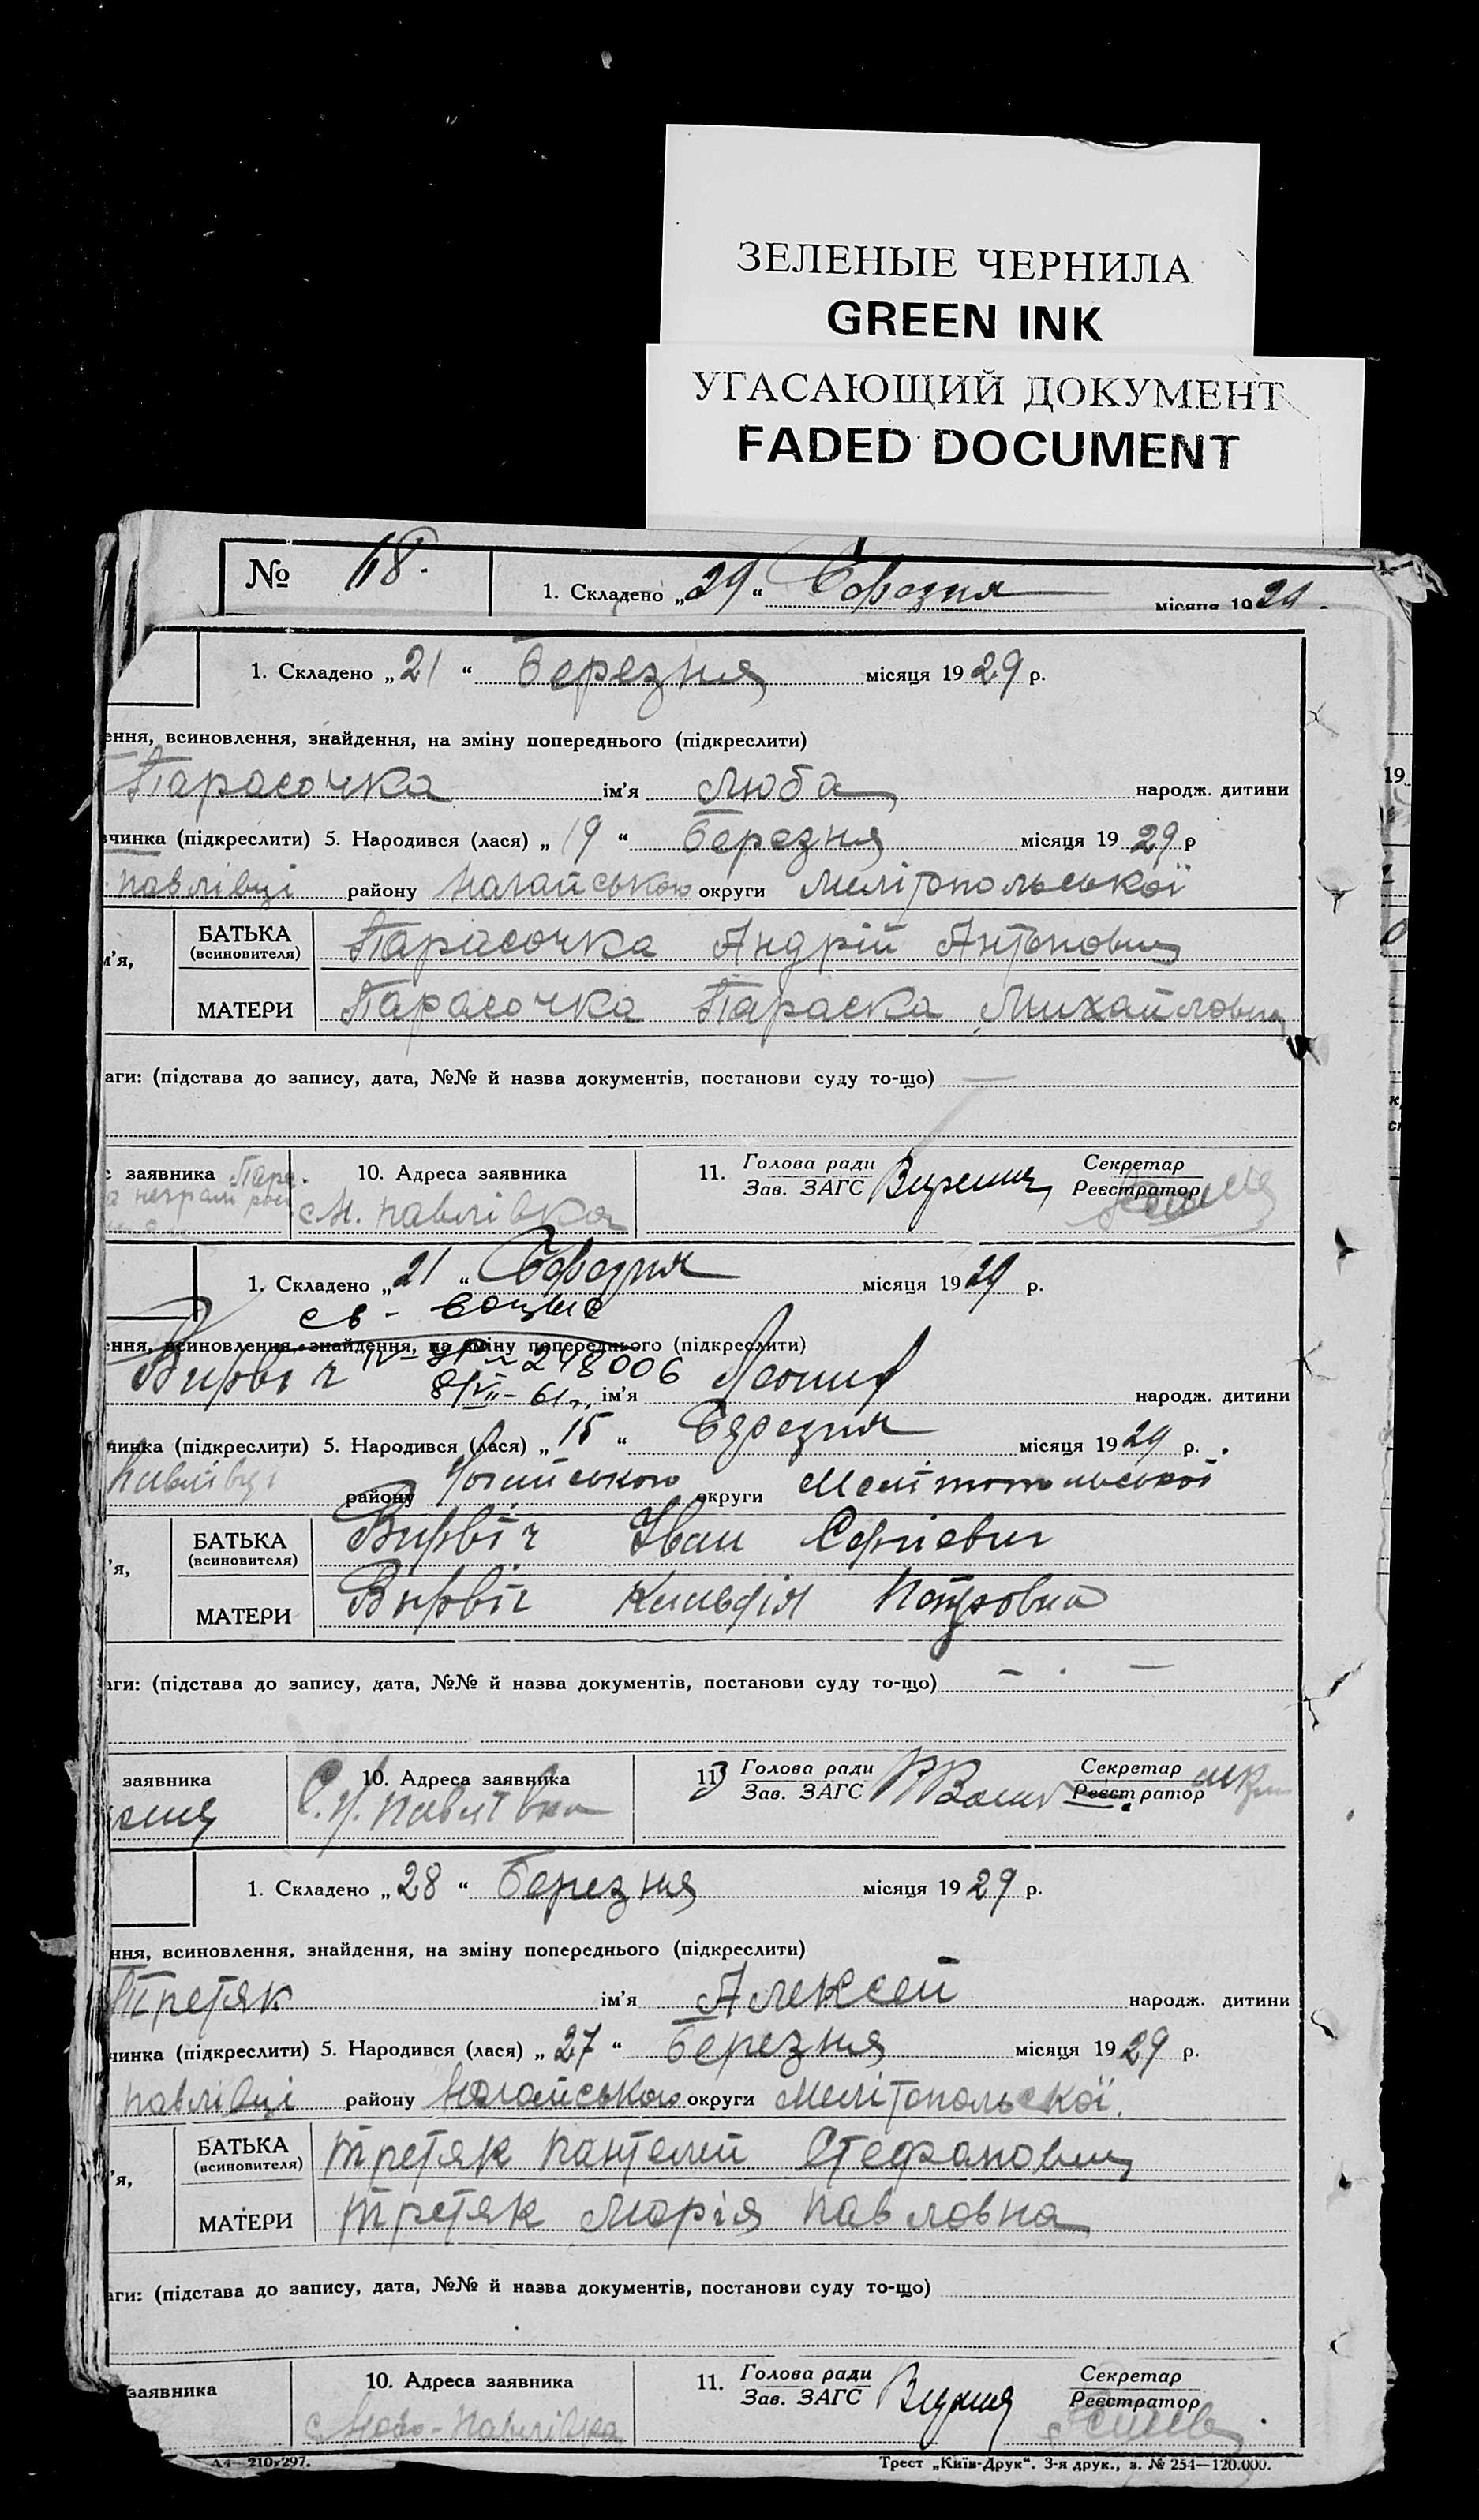 ЗЕЛЕНЫЕ ЧЕРНИЛА
GREEN INK
УГАСАЮЩИЙ ДОКУМЕНТ
FADED DOCUMENT
№ 18. 1. Складено „29“ Березня місяця 1929
1. Складено „21“ Березня місяця 1929 р.
ення, всиновлення, знайдення, на зміну попереднього (підкреслити)
Тарасочка ім'я Люба народж. дитини
вчинка (підкреслити) 5. Народився (лася) „19“ Березня місяця 1929 р
павлівці району Нагайського округи Мелітопольської
м'я, БАТЬКА (всиновителя) Тарасочка Андрій Антонович
МАТЕРИ Тарасочка Параска Михайловна
аги: (підстава до запису, дата, №№ й назва документів, постанови суду то-що) —
с заявника Тара-
10. Адреса заявника
с. Н. павлівка
11. Голова ради
Зав. ЗАГС
Секретар
Реєстратор
1. Складено „21“ Березня місяця 1929 р.
ення, всиновлення, знайдення, на зміну попереднього (підкреслити)
248006
Вирвіч ім'я Леонид народж. дитини
чинка (підкреслити) 5. Народився (лася) „15“ Березня місяця 1929 р.
Павлівці району округи Мелітопольської
'я, БАТЬКА (всиновителя) Вирвіч Іван Сергієвич
МАТЕРИ Вирвіч Клавдія Петровна
аги: (підстава до запису, дата, №№ й назва документів, постанови суду то-що) — · —
заявника
10. Адреса заявника
С. Н. Павлівка
11 Голова ради
Зав. ЗАГС
Секретар
Реєстратор
1. Складено „28“ Березня місяця 1929 р.
ння, всиновлення, знайдення, на зміну попереднього (підкреслити)
Третяк ім'я Алексей народж. дитини
чинка (підкреслити) 5. Народився (лася) „27“ Березня місяця 1929 р.
павлівці району Нагайського округи Мелітопольської.
'я, БАТЬКА (всиновителя) Третяк Пантелей Стефанович
МАТЕРИ Третяк Марія Павловна
аги: (підстава до запису, дата, №№ й назва документів, постанови суду то-що)
заявника
10. Адреса заявника
с Ново-Павлівка
11. Голова ради
Зав. ЗАГС
Секретар
Реєстратор
А4—210×297.
Трест „Київ-Друк“. 3-я друк., з. № 254—120.000.